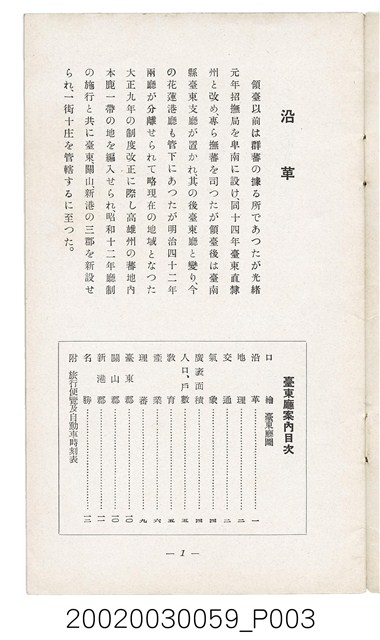 沿革
領臺以前は群蕃の據る所であつたが光緒
元年招撫局を卑南に設け、同十四年臺東直隸
州と改め、專ら撫蕃を司つたが領臺後は臺南
縣臺東支廳が置かれ、其の後臺東廳と變り、今
の花蓮港廳も管下にあつたが明治四十二年
兩廳が分離せられて略現在の地域となつた
大正九年の制度改正に際し高雄州の蕃地内
本鹿一帶の地を編入せられ、昭和十二年廳制
の施行と共に臺東、關山、新港の三郡を新設せ
られ、一街十庄を管轄するに至つた。
臺東廳案内目次
口繪 臺東廳圖
沿革……一
地理……二
交通……二
氣象……四
廣袤面積……四
人口、戶數……五
敎育……五
產業……六
理蕃……九
臺東郡……一〇
關山郡……一〇
新港郡……一一
名勝……一二
附 旅行便覽及自動車時刻表
— 1 —
20020030059_P003